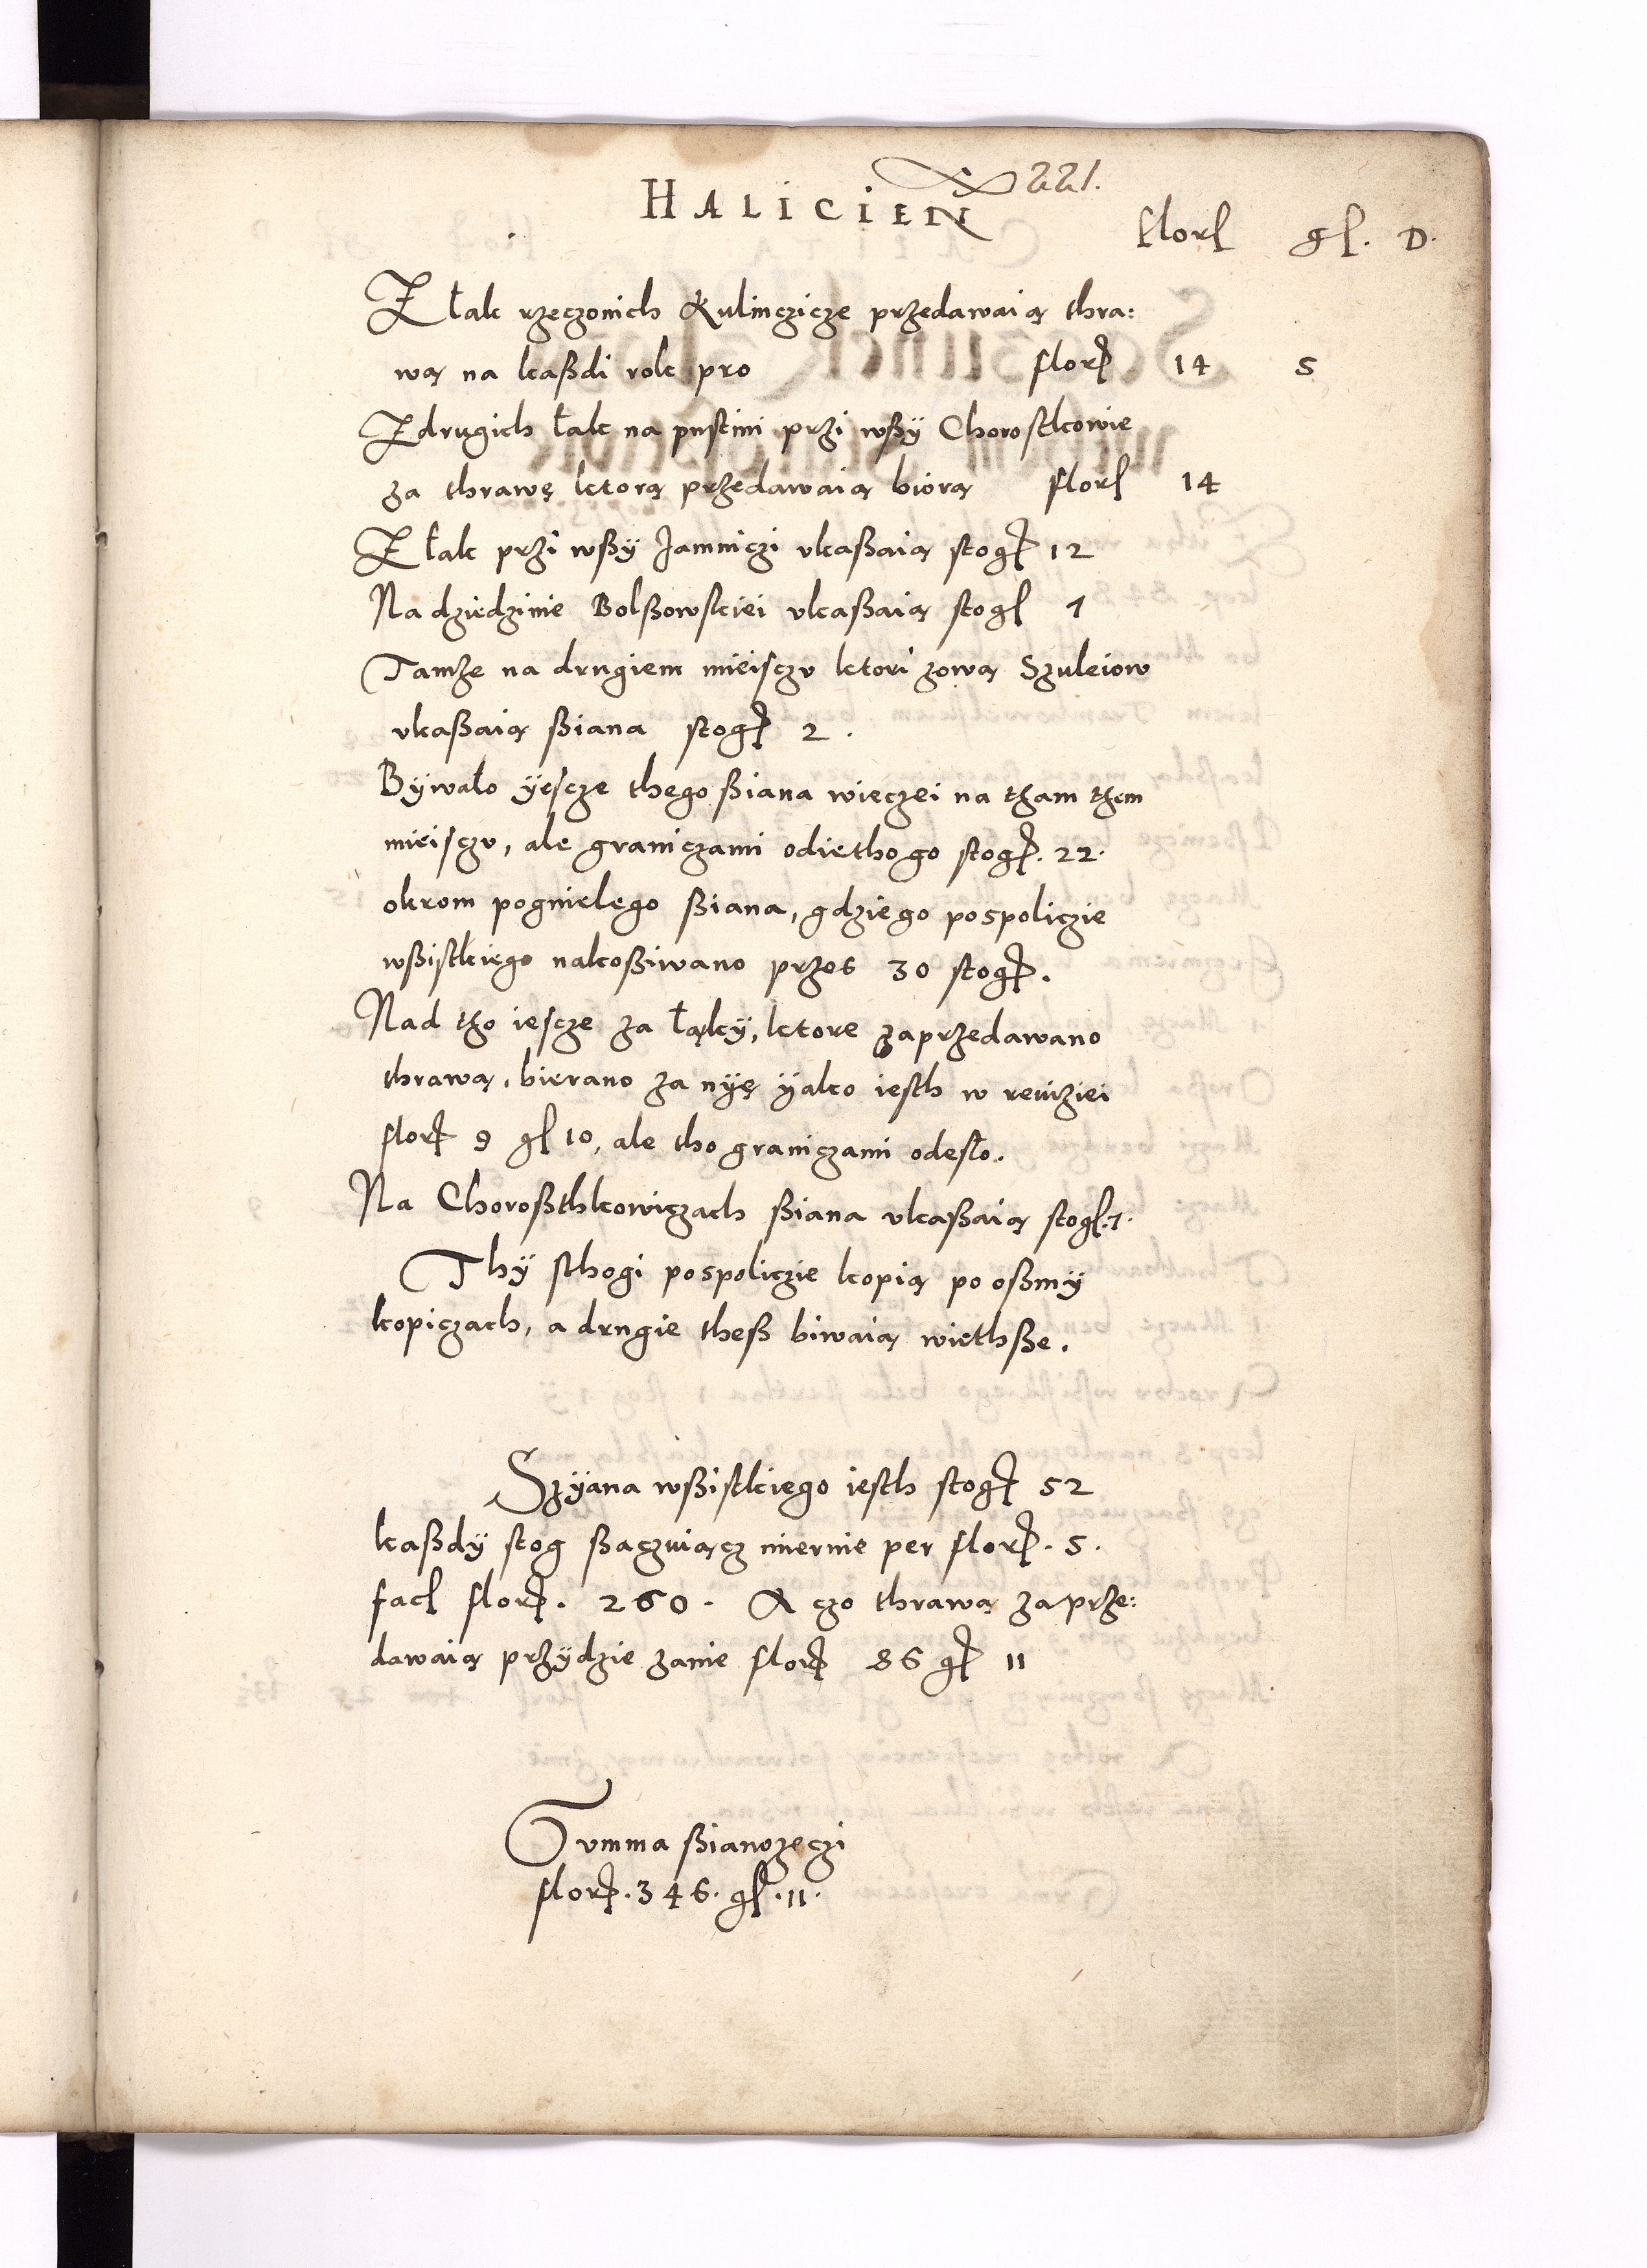 HALICIEN 221.
florſ gſ. D.
Z łak rzeczonich Kulinczicze przedawaią thra:
wą na kaßdi rok pro florſ 14 5
Z drugich łak na pustini przi wßÿ Chorostkowie
za thrawę ktorą przedawaią biorą florſ 14
Z łak przi wßÿ Jamniczi vkaßaią stogſ 12
Na dziedzinie Bolßowskiei vkaßaią stogſ 1
Tamże na drugiem mieisczv ktori zową Szuleiow
vkaßaią ßiana stogſ 2.
Bÿwało ÿescze thego ßiana wieczei na tham them
mieisczv, ale graniczami odietho go stogſ. 22.
okrom pognielego ßiana, gdzie go pospoliczie
wßistkiego nakoßiwano przes 30 stogſ.
Nad tho iescze za łąkÿ, ktore zaprzedawano
thrawą, bierano za nÿę ÿako iesth w reuiziei
florſ 9 gſ 10, ale tho graniczami odesło.
Na Choroßthkowiczach ßiana vkaßaią stogſ. 1.
Thÿ sthogi pospoliczie kopią po oßmÿ
kopiczach, a drugie theß biwaią wiethße.
Szÿana wßistkiego iesth stogſ 52
kaßdÿ stog ßaczuiącz miernie per florſ. 5.
facſ florſ. 260. A czo thrawą zaprze:
dawaią przÿdzie zanie florſ 86 gſ 11
Summa ßianozęczi
florſ. 346. gſ. 11.